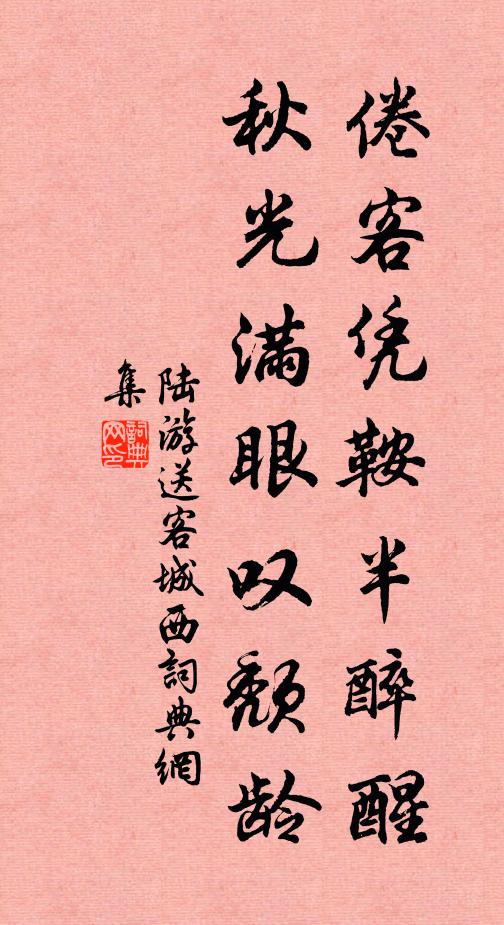 倦客凭鞍半醉醒
秋光满眼叹颓龄
陆游送客城西詞典網
集
詞典网印